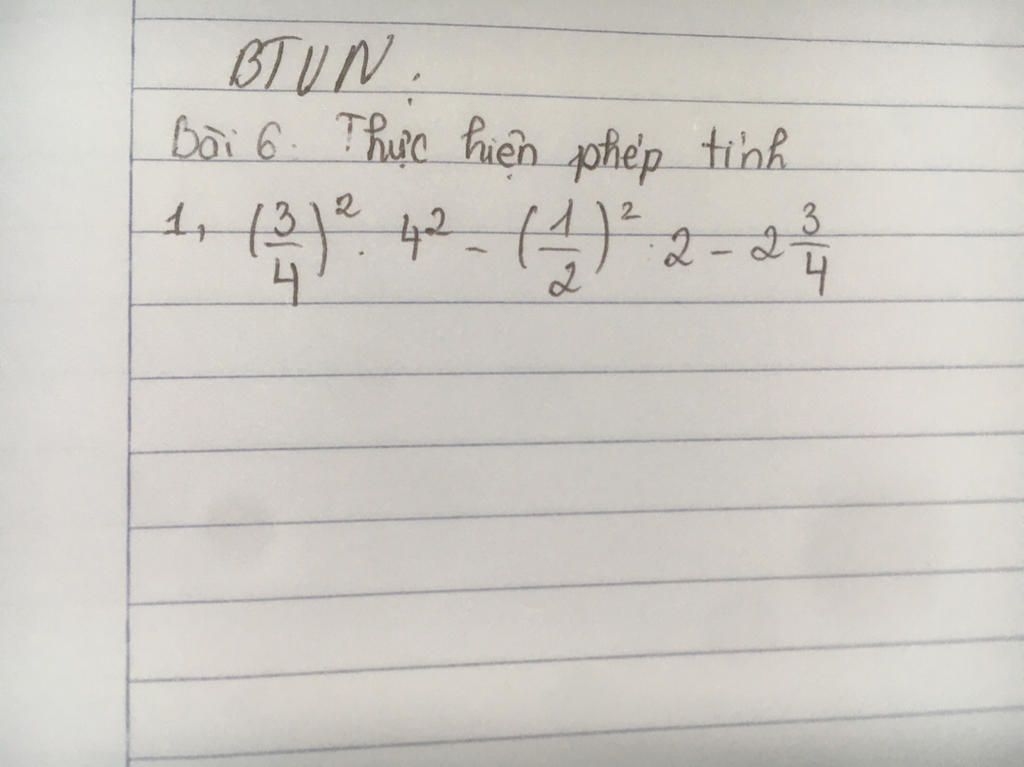 BTVN.
Bài 6. Thực hiện phép tính
1, (3/4)² . 4² - (1/2)² . 2 - 2 3/4